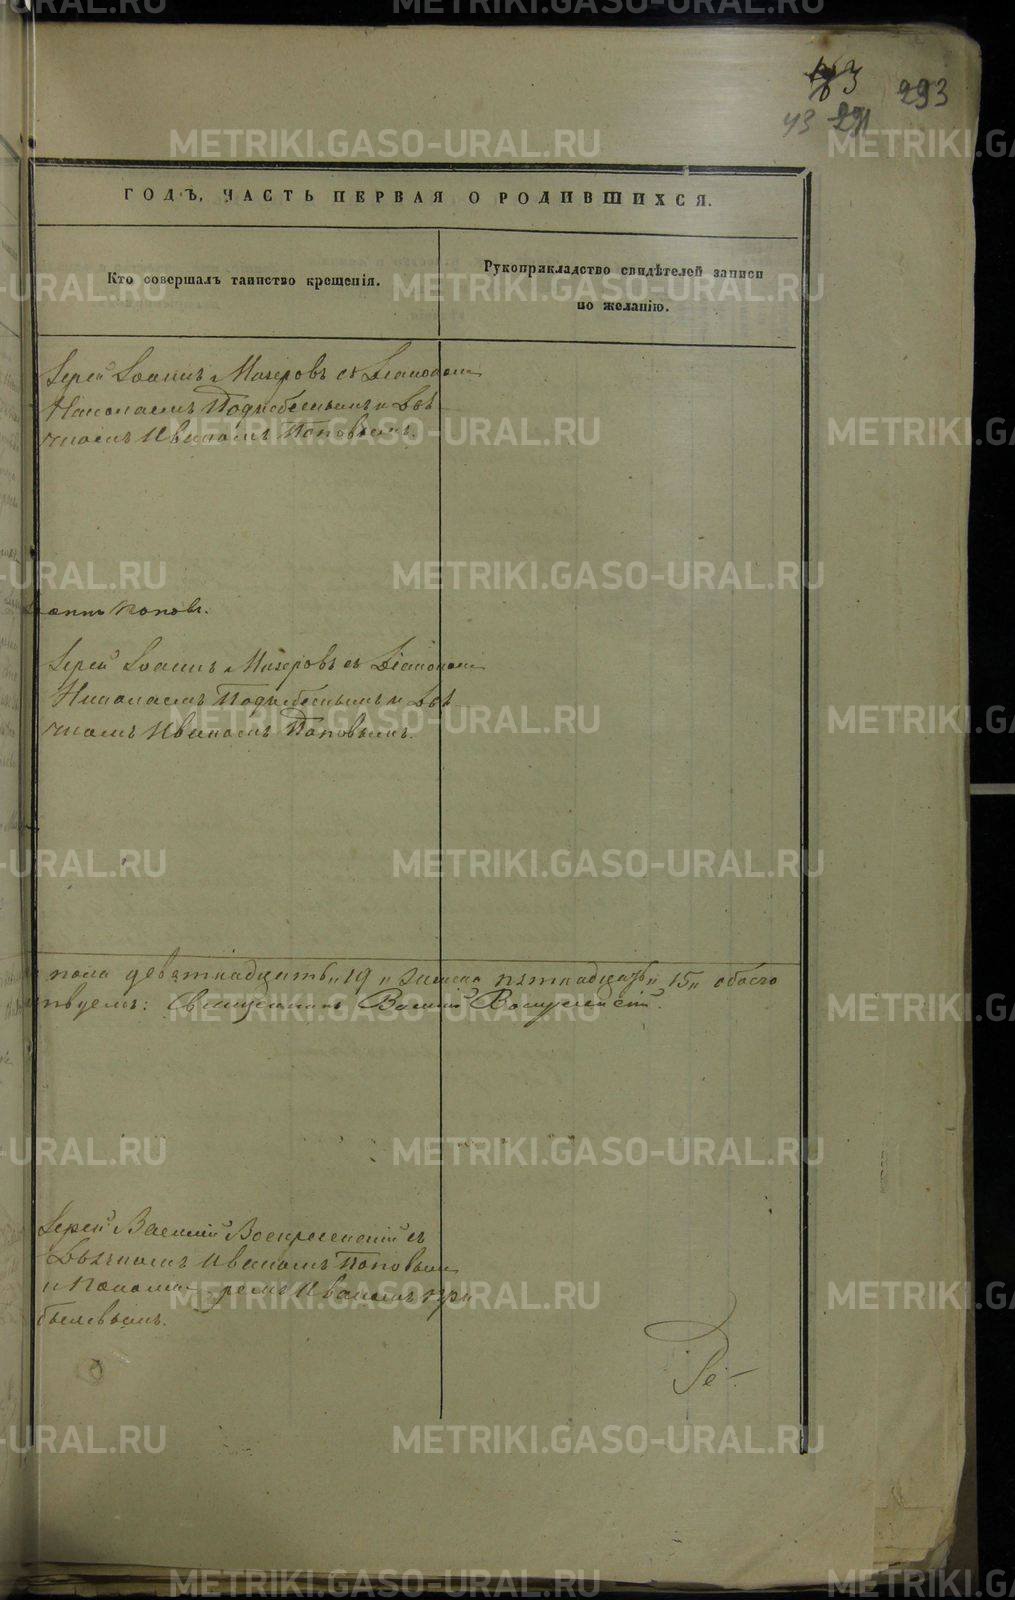 293
43 291
ГОДЪ, ЧАСТЬ ПЕРВАЯ О РОДИВШИХСЯ.
Кто совершалъ таинство крещенія.
Рукоприкладство свидѣтелей записи
по желанію.
Іерей Іоаннъ Мизеровъ съ Діакономъ
Николаемъ Поднебеснымъ и Дья
чкомъ Иваномъ Поповымъ.
Іоаннъ Поповъ.
Іерей Іоаннъ Мизеровъ съ Діакономъ
Николаемъ Поднебеснымъ и Дья
чкомъ Иваномъ Поповымъ.
пола девятнадцать „19„ женска пятнадцать „15„ обоего
Священникъ Василій Воскресенскій.
Іерей Василій Воскресенскій съ
Дьячкомъ Иваномъ Поповымъ
и Пономаремъ Иваномъ При
былевымъ.
METRIKI.GASO-URAL.RU